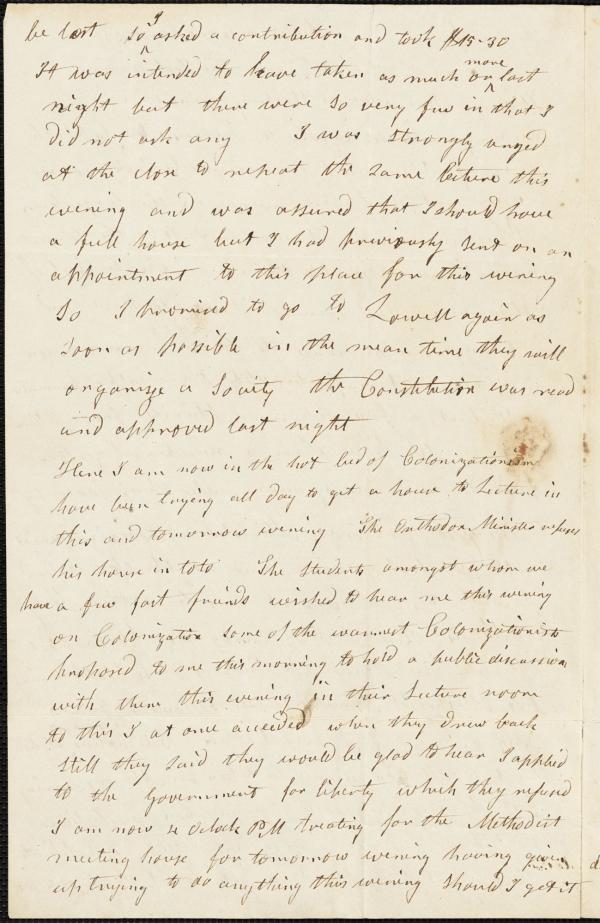 be lost So I asked a contribution and took $15-30
It was intended to have taken as much or more last
night but there were so very few in that I
did not ask any I was strongly urged
at the close to repeat the same lecture this
evening and was assured that I should have
a full house but I had previously sent on an
appointment to this place for this evening
So I promised to go to Lowell again as
soon as possible in the mean time they will
organize a Society the Constitution was read
and approved last night
Here I am now in the hot bed of Colonizationism
have been trying all day to get a house to Lecture in
this and tomorrow evening The Orthodox Minister refuses
his house in toto The Students amongst whom we
have a few fast friends wished to hear me this evening
on Colonization Some of the warmest Colonizationists
proposed to me this morning to hold a public discussion
with them this evening in their Lecture room
to this I at once acceeded when they drew back
Still they said they would be glad to hear I applied
to the Government for liberty which they refused
I am now oclock PM treating for the Methodist
meeting house for tomorrow evening having given
up trying to do anything this evening Should I get it